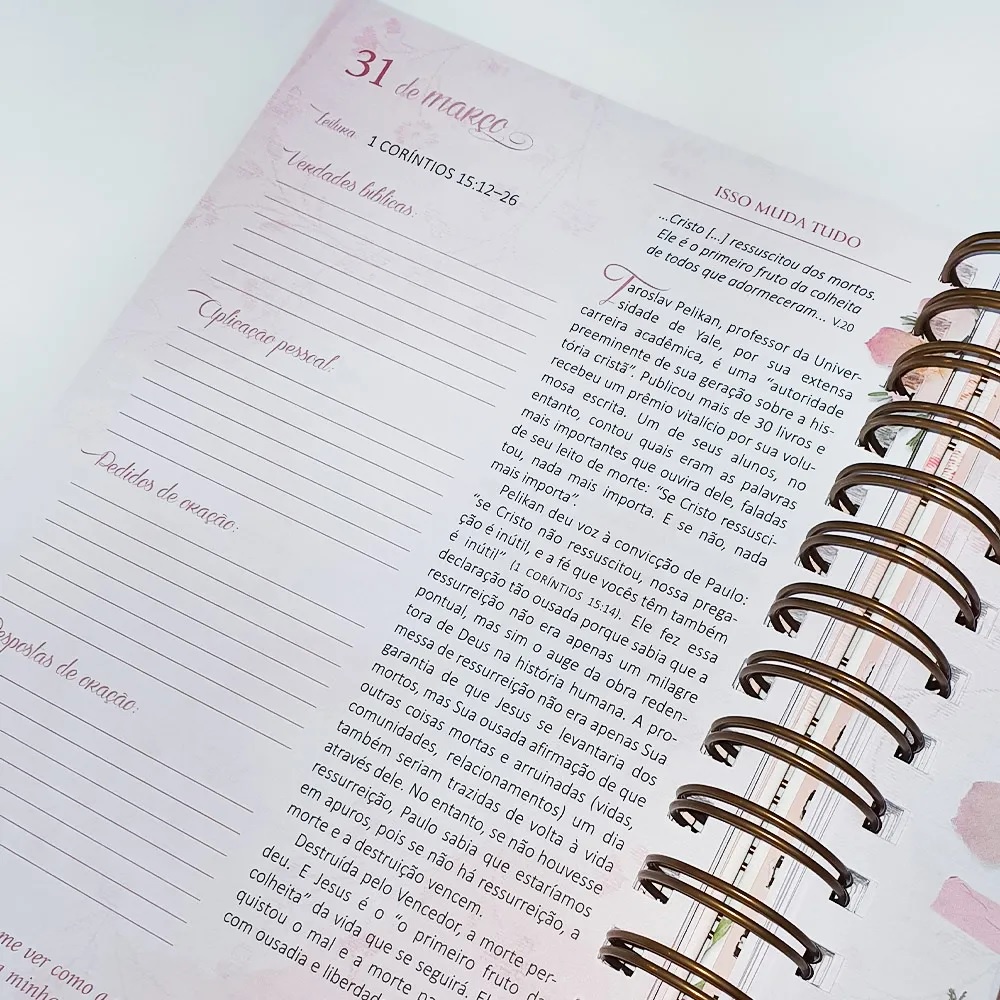 31 de março
Leitura: 1 CORÍNTIOS 15:12–26
Verdades bíblicas:
Aplicação pessoal:
Pedidos de oração:
Respostas de oração:
me ver como a
a minha
ISSO MUDA TUDO
...Cristo [...] ressuscitou dos mortos.
Ele é o primeiro fruto da colheita
de todos que adormeceram... v.20
Jaroslav Pelikan, professor da Univer-
sidade de Yale, por sua extensa
carreira acadêmica, é uma “autoridade
preeminente de sua geração sobre a his-
tória cristã”. Publicou mais de 30 livros e
recebeu um prêmio vitalício por sua volu-
mosa escrita. Um de seus alunos, no
entanto, contou quais eram as palavras
mais importantes que ouvira dele, faladas
de seu leito de morte: “Se Cristo ressusci-
tou, nada mais importa. E se não, nada
mais importa”.
Pelikan deu voz à convicção de Paulo:
“se Cristo não ressuscitou, nossa prega-
ção é inútil, e a fé que vocês têm também
é inútil” (1 CORÍNTIOS 15:14). Ele fez essa
declaração tão ousada porque sabia que a
ressurreição não era apenas um milagre
pontual, mas sim o auge da obra reden-
tora de Deus na história humana. A pro-
messa de ressurreição não era apenas Sua
garantia de que Jesus se levantaria dos
mortos, mas Sua ousada afirmação de que
outras coisas mortas e arruinadas (vidas,
comunidades, relacionamentos) um dia
também seriam trazidas de volta à vida
através dele. No entanto, se não houvesse
ressurreição, Paulo sabia que estaríamos
em apuros, pois se não há ressurreição, a
morte e a destruição vencem.
Destruída pelo Vencedor, a morte per-
deu. E Jesus é o “o primeiro fruto da
colheita” da vida que se seguirá. El
quistou o mal e a morte
com ousadia e liberdad